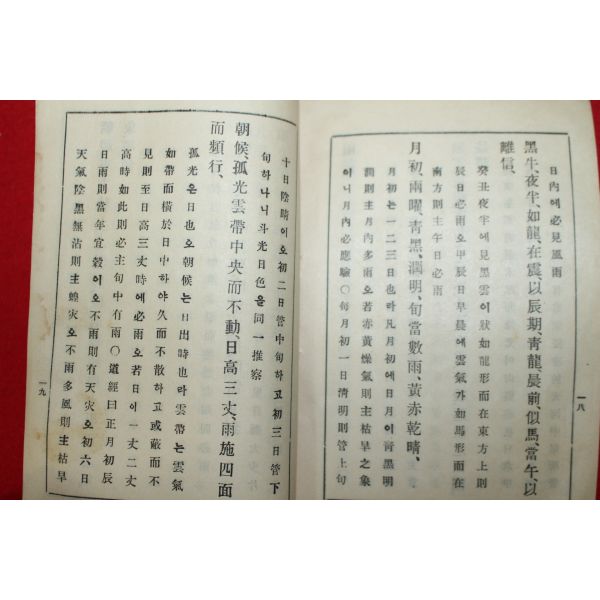 日內에必見風雨
黑牛、夜半、如龍、在震、以辰期、靑龍、晨前、似馬、當午、以
離信、
癸丑夜半에見黑雲이狀如龍形而在東方上則
辰日必雨오甲辰日早晨에雲氣가如馬形而在
南方則主午日必雨
月初、雨曜、靑黑、潤明、旬當數雨、黃赤乾晴、
月初는一二三日也라凡月初에日月이靑黑明
潤則主月內多雨오若赤黃燥氣則主枯旱之象
이니月內必應驗○每月初一日淸明則管上旬
一八
十日陰晴이오初二日管中旬하고初三日管下
旬하나니斗光日色을同一推察
朝候、孤光雲帶中央而不動、日高三丈、雨施四面
而頻行、
孤光은日也오朝候는日出時也라雲帶는雲氣
如帶而橫於日中하야久而不散하고或蔽而不
見則至日高三丈時에必雨오若日이一丈二丈
高時如此則必主旬中有雨○道經曰正月初辰
日雨則當年宜穀이오不雨則有天灾오初六日
天氣陰黑無沾則主蝗灾오不雨多風則主枯旱
一九